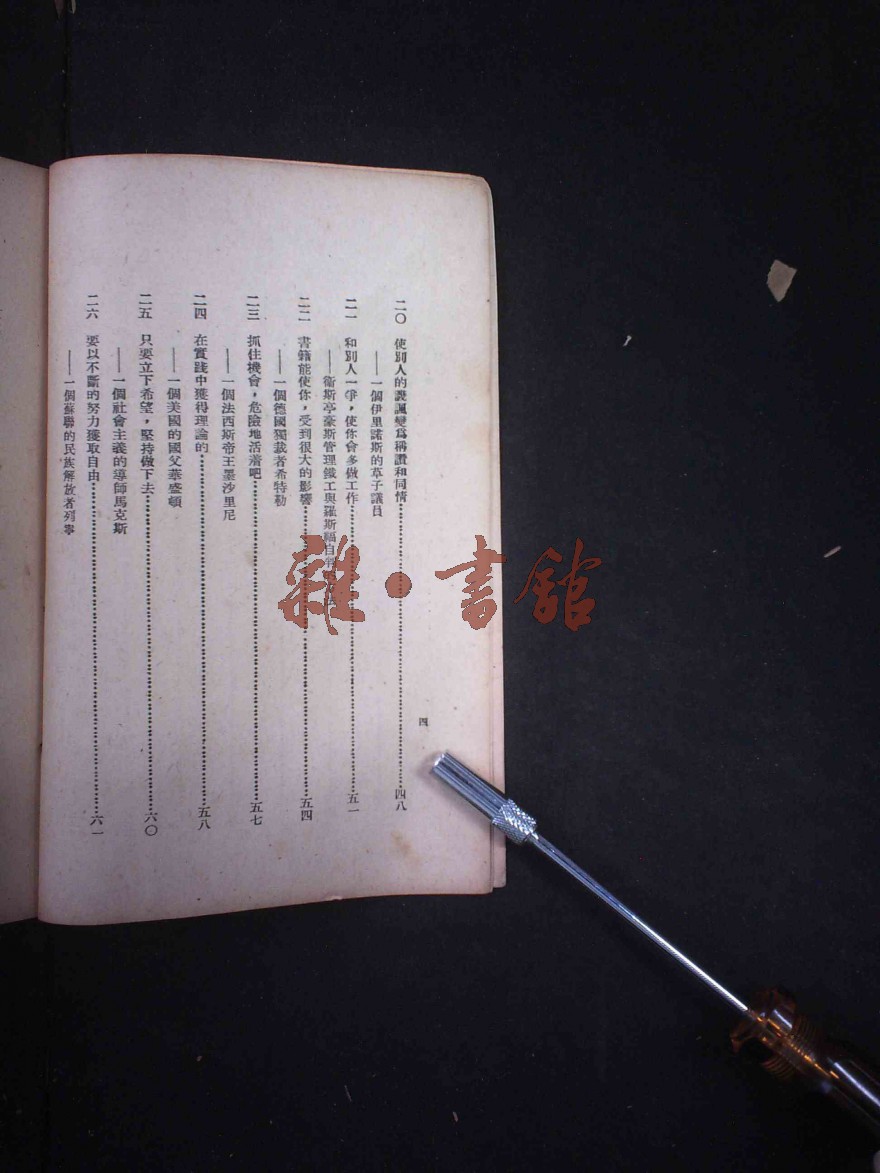 四
二〇 使別人的譏諷變爲稱讚和同情……四八
——一個伊里諾斯的草子議員
二一 和別人一爭，使你會多做工作……五一
——衛斯亭豪斯管理鐵工與羅斯福自
二二 書籍能使你，受到很大的影響……五四
——一個德國獨裁者希特勒
二三 抓住機會，危險地活着吧……五七
——一個法西斯帝王墨沙里尼
二四 在實踐中獲得理論的……五八
——一個美國的國父華盛頓
二五 只要立下希望，堅持做下去……六〇
——一個社會主義的導師馬克斯
二六 要以不斷的努力獲取自由……六一
——一個蘇聯的民族解放者列寧
雜·書館